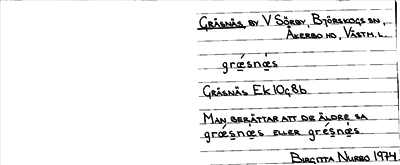 GRÄSNÄS, BY V SÖRBY, BJÖRSKOGS SN,
ÅKERBO HD, VÄSTM.L.
grǽsnæ̀s
GRÄSNÄS EK 10G8b
MAN BERÄTTAR ATT DE ÄLDRE SA
grǿsnæ̀s ELLER grésnæ̀s
BIRGITTA NURBO 1974